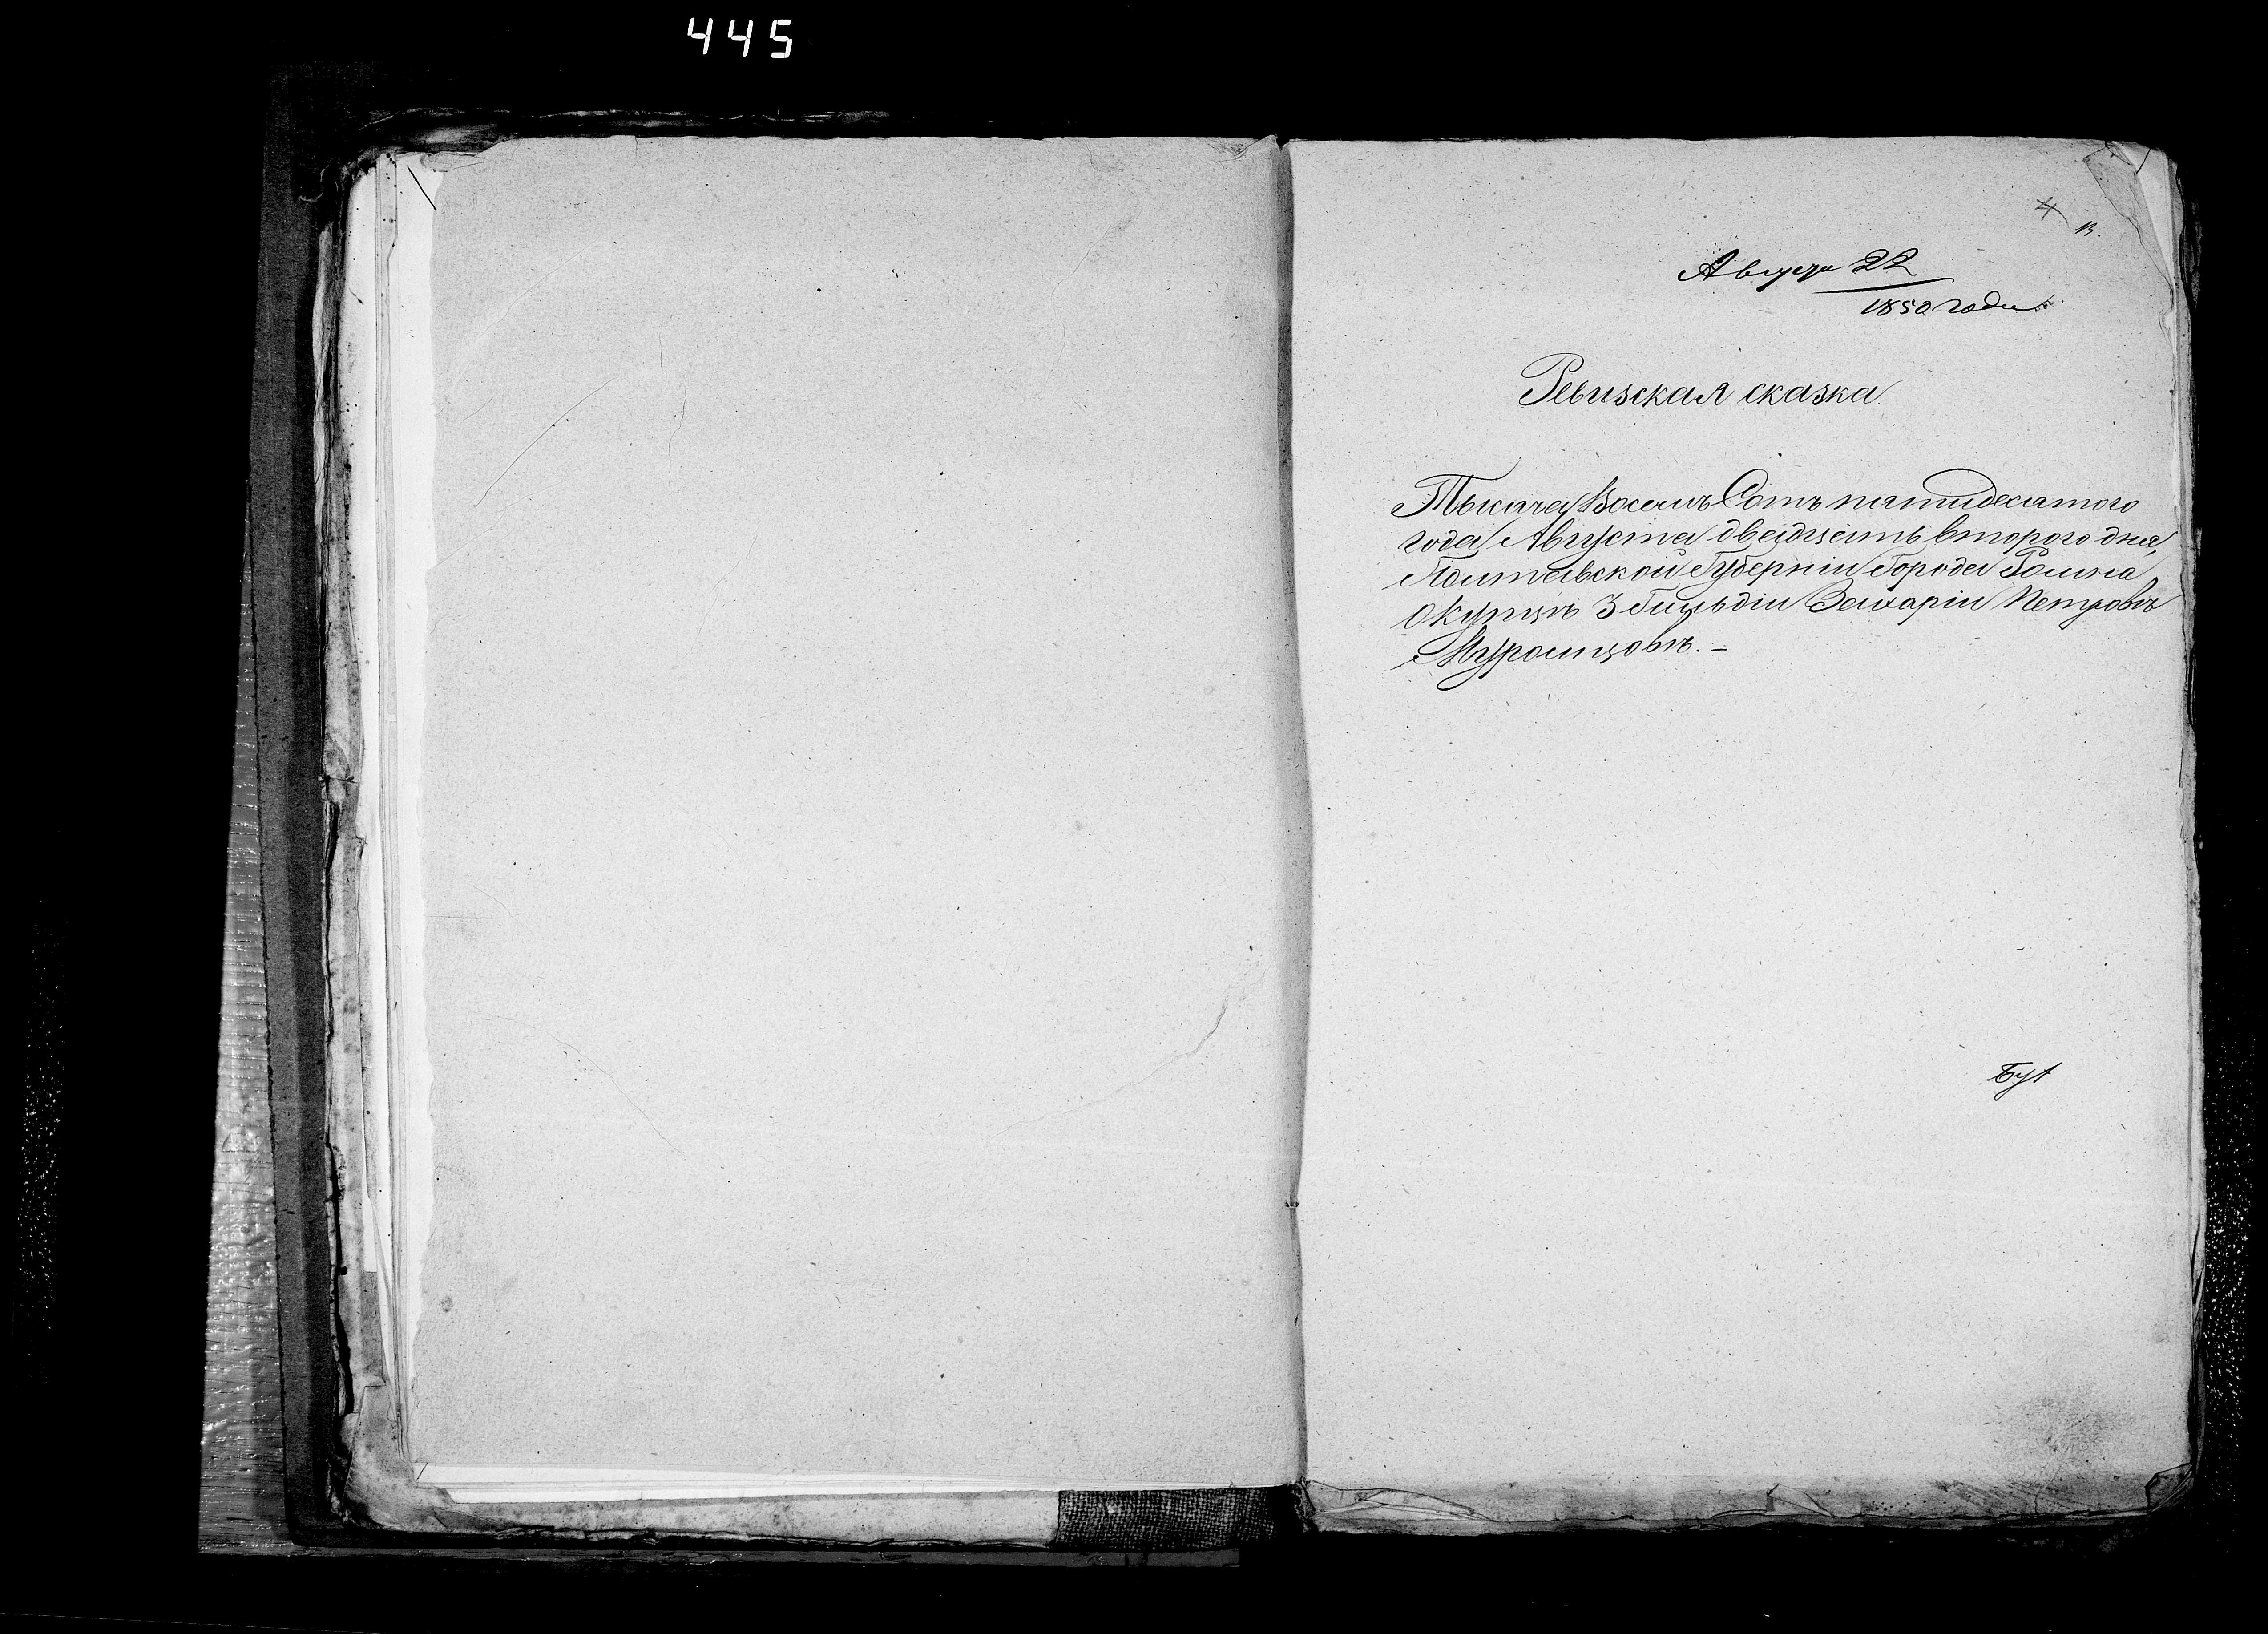 445
13.
Августа 22
1850 года
Ревизская сказка
Тысяча Восемь Сотъ пятидесятого
года Августа двадцать второго дня,
Полтавской Губерніи Города Ромна
О Купцѣ 3 Гильдіи Захаріи Петровѣ
Муромцовѣ. –